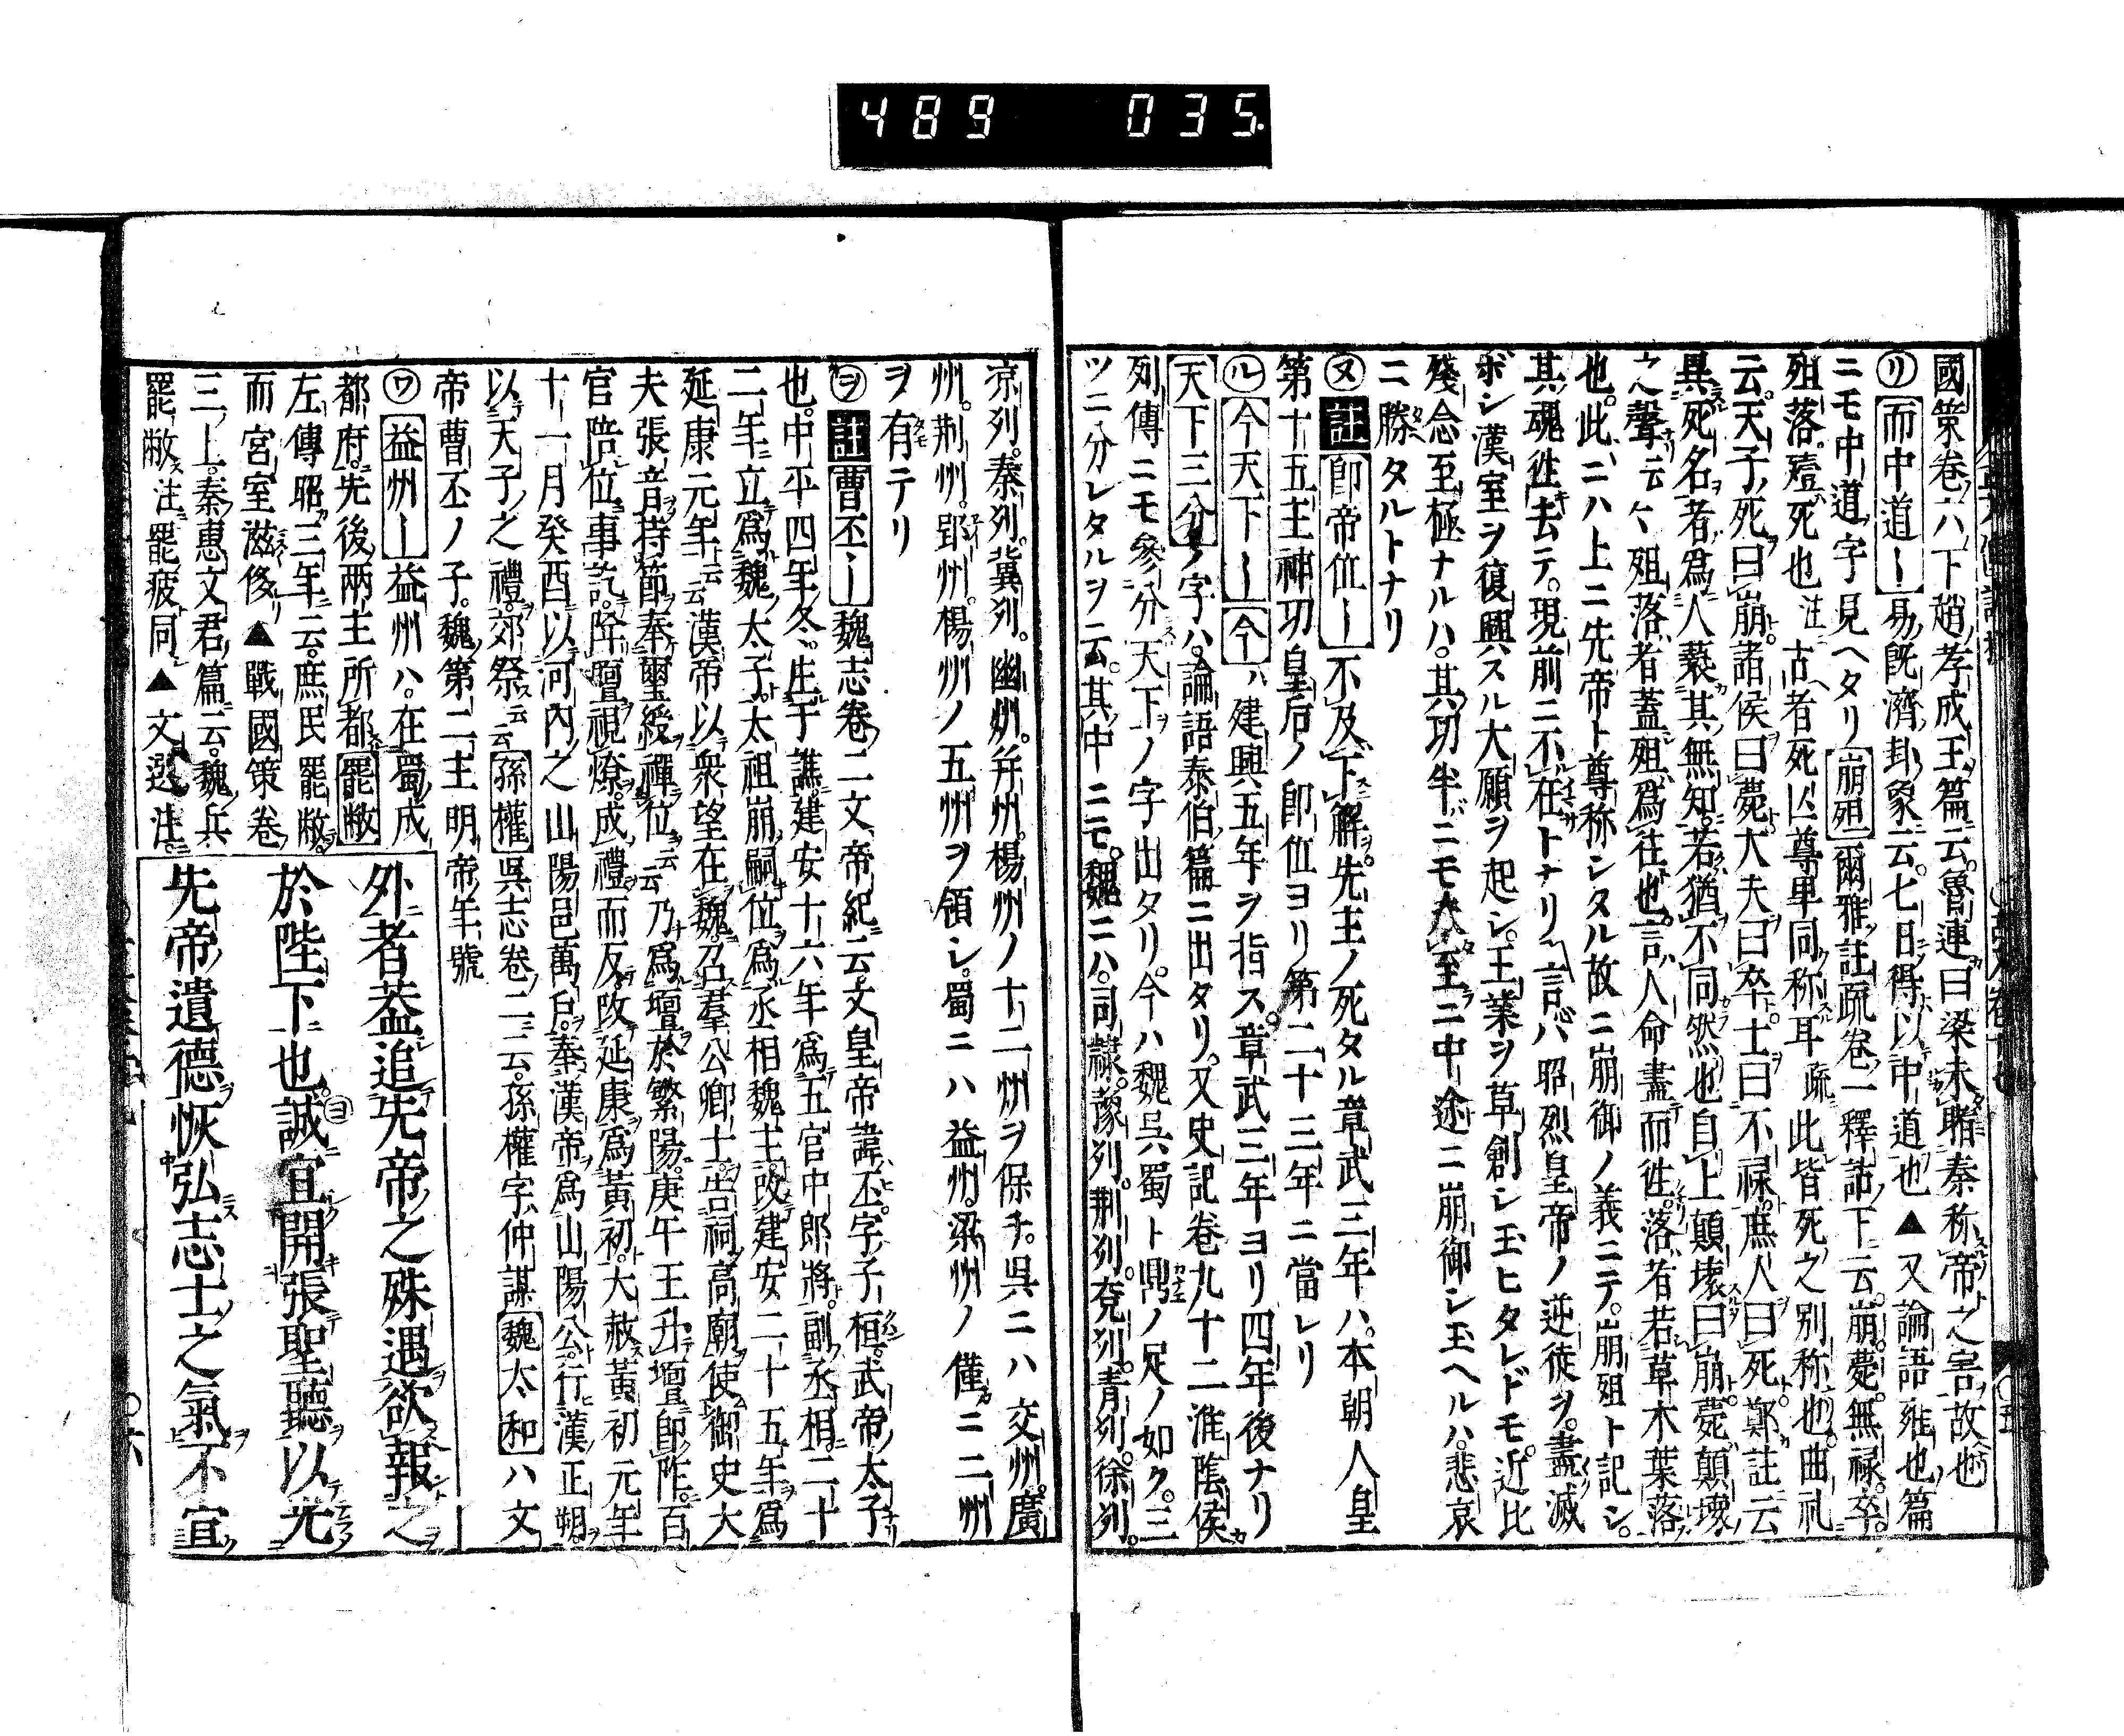 489 035.
國策卷六ノ下趙孝成王篇云魯連曰梁未睹秦称帝之害故也
㋷而中道｜易既濟卦象云七日得以中道也▲又論語雍也篇
ニモ中道ノ字見ヘタリ崩殂爾雅註疏卷一釋詁下云崩薨無禄卒
殂落殪死也注古者死亡尊卑同称耳疏此皆死之別称也曲礼
云天子死曰崩諸侯曰薨大夫曰卒士曰不禄庶人曰死鄭註云
異死名者爲人褻其無知若猶不同然也自上顛壊曰崩薨顛壊
之聲云々殂落者蓋殂爲往也言人命盡而往落者若草木葉落
也此ニハ上ニ先帝ト尊称シタル故ニ崩御ノ義ニテ崩殂ト記シ
其魂徃去テ現前ニ不在トナリ言ハ昭烈皇帝ノ逆徒ヲ盡滅
ボシ漢室ヲ復興スル大願ヲ起シ王業ヲ草創シ玉ヒタレドモ近比
殘念至極ナルハ其功半ニモ不至ニ中途ニ崩御シ玉ヘルハ悲哀
ニ勝タルトナリ
㋦註即帝位｜不及下解先主ノ死タル章武三年ハ本朝人皇
第十五主神功皇后ノ即位ヨリ第二十三年ニ當レリ
㋸今天下｜今ハ建興五年ヲ指ス章武三年ヨリ四年後ナリ
天下三分ノ字ハ論語泰伯篇ニ出タリ又史記卷九十二淮陰侯
列傳ニモ參分天下ノ字出タリ今ハ魏呉蜀ト鼎ノ足ノ如ク三
ツニ分レタルヲ云其中ニモ魏ニハ司隸豫列荆列兗列青列徐列
凉列秦列冀列幽州并州楊州ノ十二州ヲ保チ呉ニハ交州廣
州荆州郢州楊州ノ五州ヲ領シ蜀ニハ益州梁州ノ僅ニ二州
ヲ有テリ
㋾註曹丕｜魏志卷二文帝紀云文皇帝諱丕字子桓武帝太子
也中平四年冬生于譙建安十六年爲五官中郎將副丞相二十
二年立爲魏太子太祖崩嗣位爲丞相魏王改建安二十五年爲
延康元年云云漢帝以衆望在魏召羣公卿士告祠高廟使御史大
夫張音持節奉璽綬禪位云云乃爲壇於繁陽庚午王升壇即阼百
官陪位事訖降壇視燎成禮而反改延康爲黃初大赦黃初元年
十一月癸酉以河内之山陽邑萬戸奉漢帝爲山陽公行漢正朔
以天子之禮郊祭云云孫權呉志卷二云孫權字仲謀魏太和ハ文
帝曹丕ノ子魏第二主明帝年號
㋻益州｜益州ハ在蜀成
都府先後兩主所都罷敝
左傳昭三年云庶民罷敝
而宮室滋侈▲戰國策卷
三上秦惠文君篇云魏兵
罷敝注罷疲同▲文選注
外者蓋追先帝之殊遇欲報之
於陛下也㋵誠宜開張聖聽以光
先帝遺德恢弘志士之氣不宜